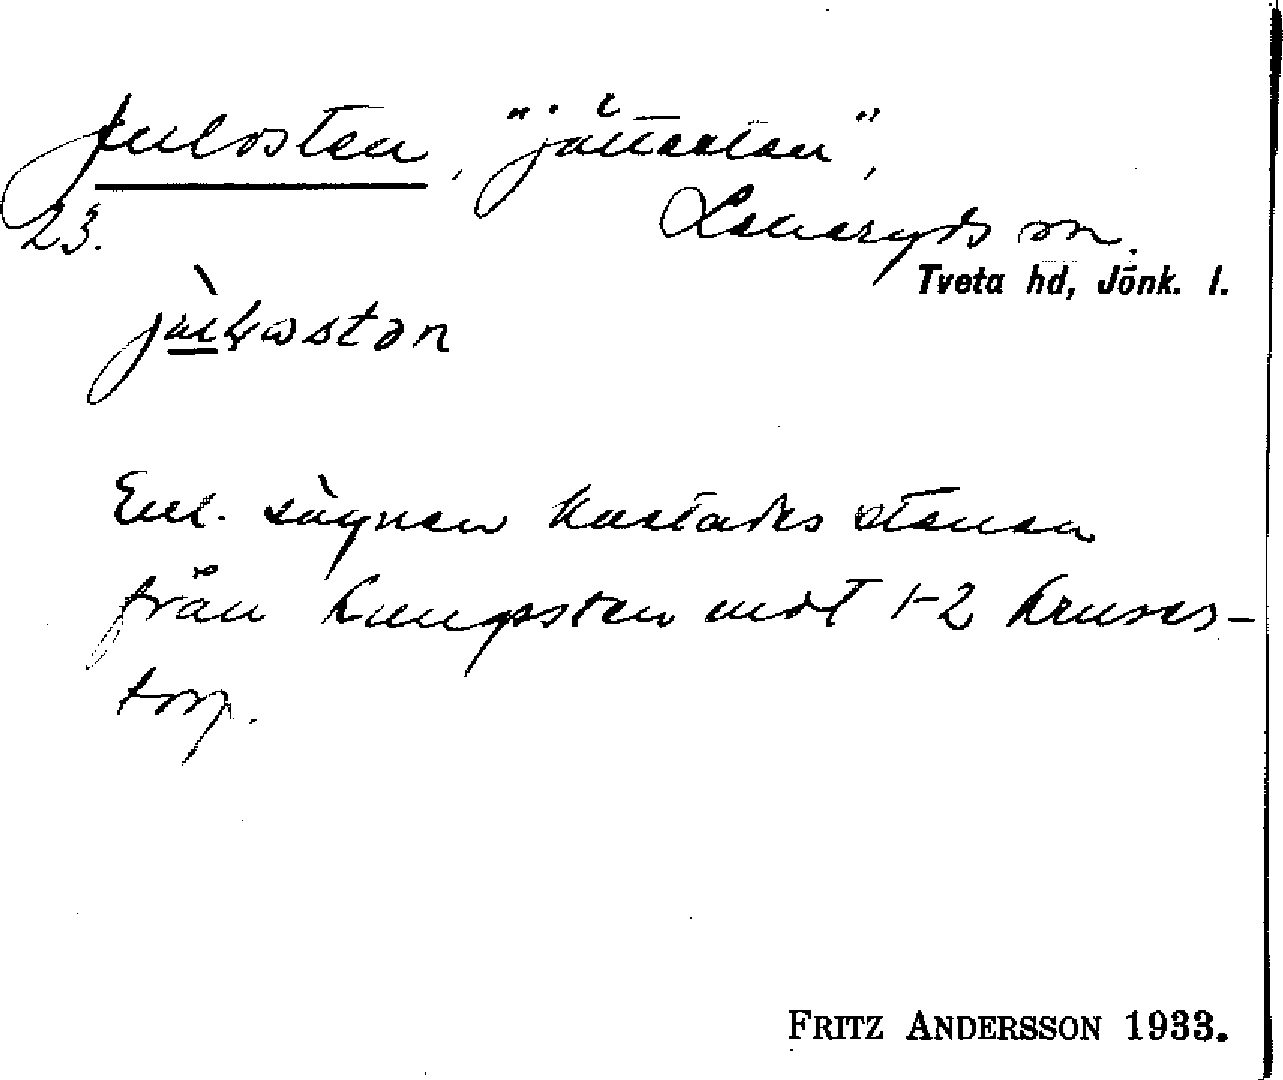 Julosten, "jättesten",
23.
Lekeryds sn.
Tveta hd, Jönk. l.
Enl. sägnen kastades stenen
från Kungssten mot 1-2 Kruses-
torp.
FRITZ ANDERSSON 1933.